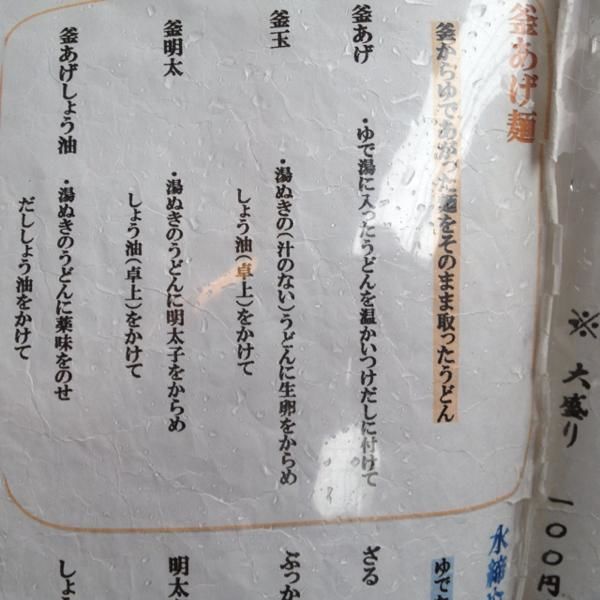 ※大盛り 一〇〇円
釜あげ麺
釜からゆであがった麺をそのまま取ったうどん
釜あげ
・ゆで湯に入ったうどんを温かいつけだしに付けて
釜玉
・湯ぬきの(汁のない)うどんに生卵をからめ
しょう油(卓上)をかけて
釜明太
・湯ぬきのうどんに明太子をからめ
しょう油(卓上)をかけて
釜あげしょう油
・湯ぬきのうどんに薬味をのせ
だししょう油をかけて
水締
ゆで
ざる
ぶっか
明太
しょ